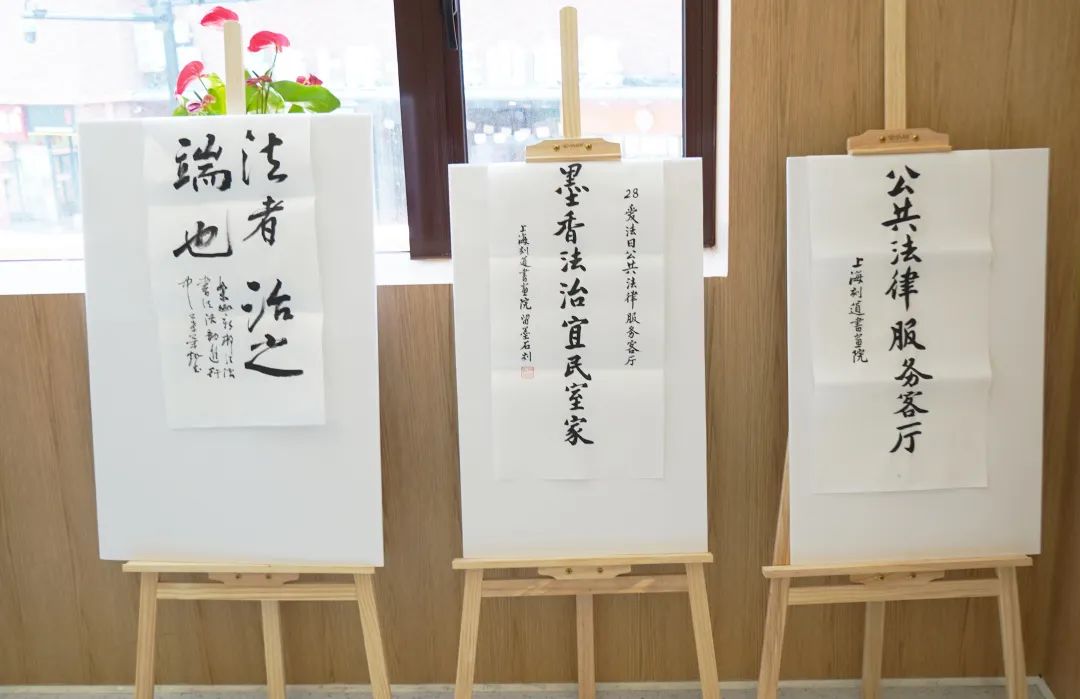 法者治之
端也
28爱法日公共法律服务客厅
墨香法治宜民室家
上海刻道書畫院 留墨石刻
公共法律服务客厅
上海刻道書畫院